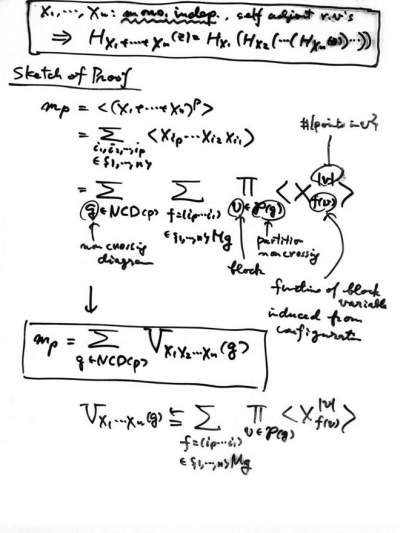 X₁, ..., Xₙ : mono. indep., self adjoint r.v.'s
⇒ H_{X₁+...+Xₙ}(z) = H_{X₁}(H_{X₂}(...(H_{Xₙ}(z))...))
Sketch of Proof
m_p = <(X₁+...+Xₙ)^p>
= Σ_{i₁,i₂,...,i_p ∈{1,...,n}} <X_{i_p}...X_{i₂}X_{i₁}>
#{points in v}
= Σ_{g∈NCD(p)} Σ_{f=(i_p...i₁) ∈{1,...,n}^{Mg}} Π_{v∈P(g)} <X_{f(v)}^{|v|}>
noncrossing diagram
block
partition noncrossing
function of block variable
induced from configuration
↓
m_p = Σ_{g∈NCD(p)} V_{X₁X₂...Xₙ}(g)
V_{X₁...Xₙ}(g) = Σ_{f=(i_p...i₁) ∈{1,...,n}^{Mg}} Π_{v∈P(g)} <X_{f(v)}^{|v|}>